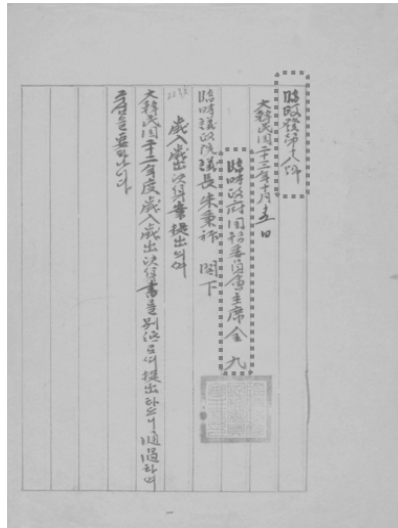 臨政發第十八號
大韓民国二十三年十月十五日
臨時政府国務委員會主席 金 九
臨時議政院議長 宋秉祚 閣下
歲入歲出決算案提出의件
大韓民国二十二年度歲入歲出決算書를別紙로써提出하오니通過하여
주심을要하나이다